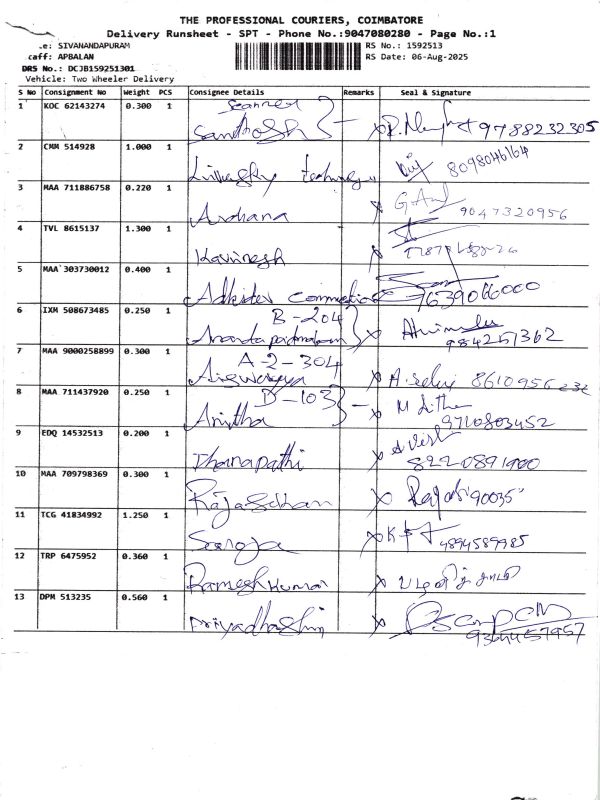 THE PROFESSIONAL COURIERS, COIMBATORE
Delivery Runsheet - SPT - Phone No.:9047080280 - Page No.:1
.e: SIVANANDAPURAM RS No.: 1592513
caff: APBALAN RS Date: 06-Aug-2025
DRS No.: DCJB159251301
Vehicle: Two Wheeler Delivery
S No Consignment No Weight PCS Consignee Details Remarks Seal & Signature
1 KOC 62143274 0.300 1 Santhosh 9788232305
2 CMM 514928 1.000 1 8098046164
3 MAA 711886758 0.220 1 Archana 9047320956
4 TVL 8615137 1.300 1 Kavinesh
5 MAA 303730012 0.400 1 7639066000
6 IXM 508673485 0.250 1 B-204 984251362
7 MAA 9000258899 0.300 1 A-2-304 Aiswarya
8 MAA 711437920 0.250 1 B-103 Anitha 9710803452
9 EDQ 14532513 0.200 1 Dhanapathi 8220891900
10 MAA 709798369 0.300 1
11 TCG 41834992 1.250 1 Saroja 4894589985
12 TRP 6475952 0.360 1 Ramesh Kumar
13 DPM 513235 0.560 1 Priyadharshini